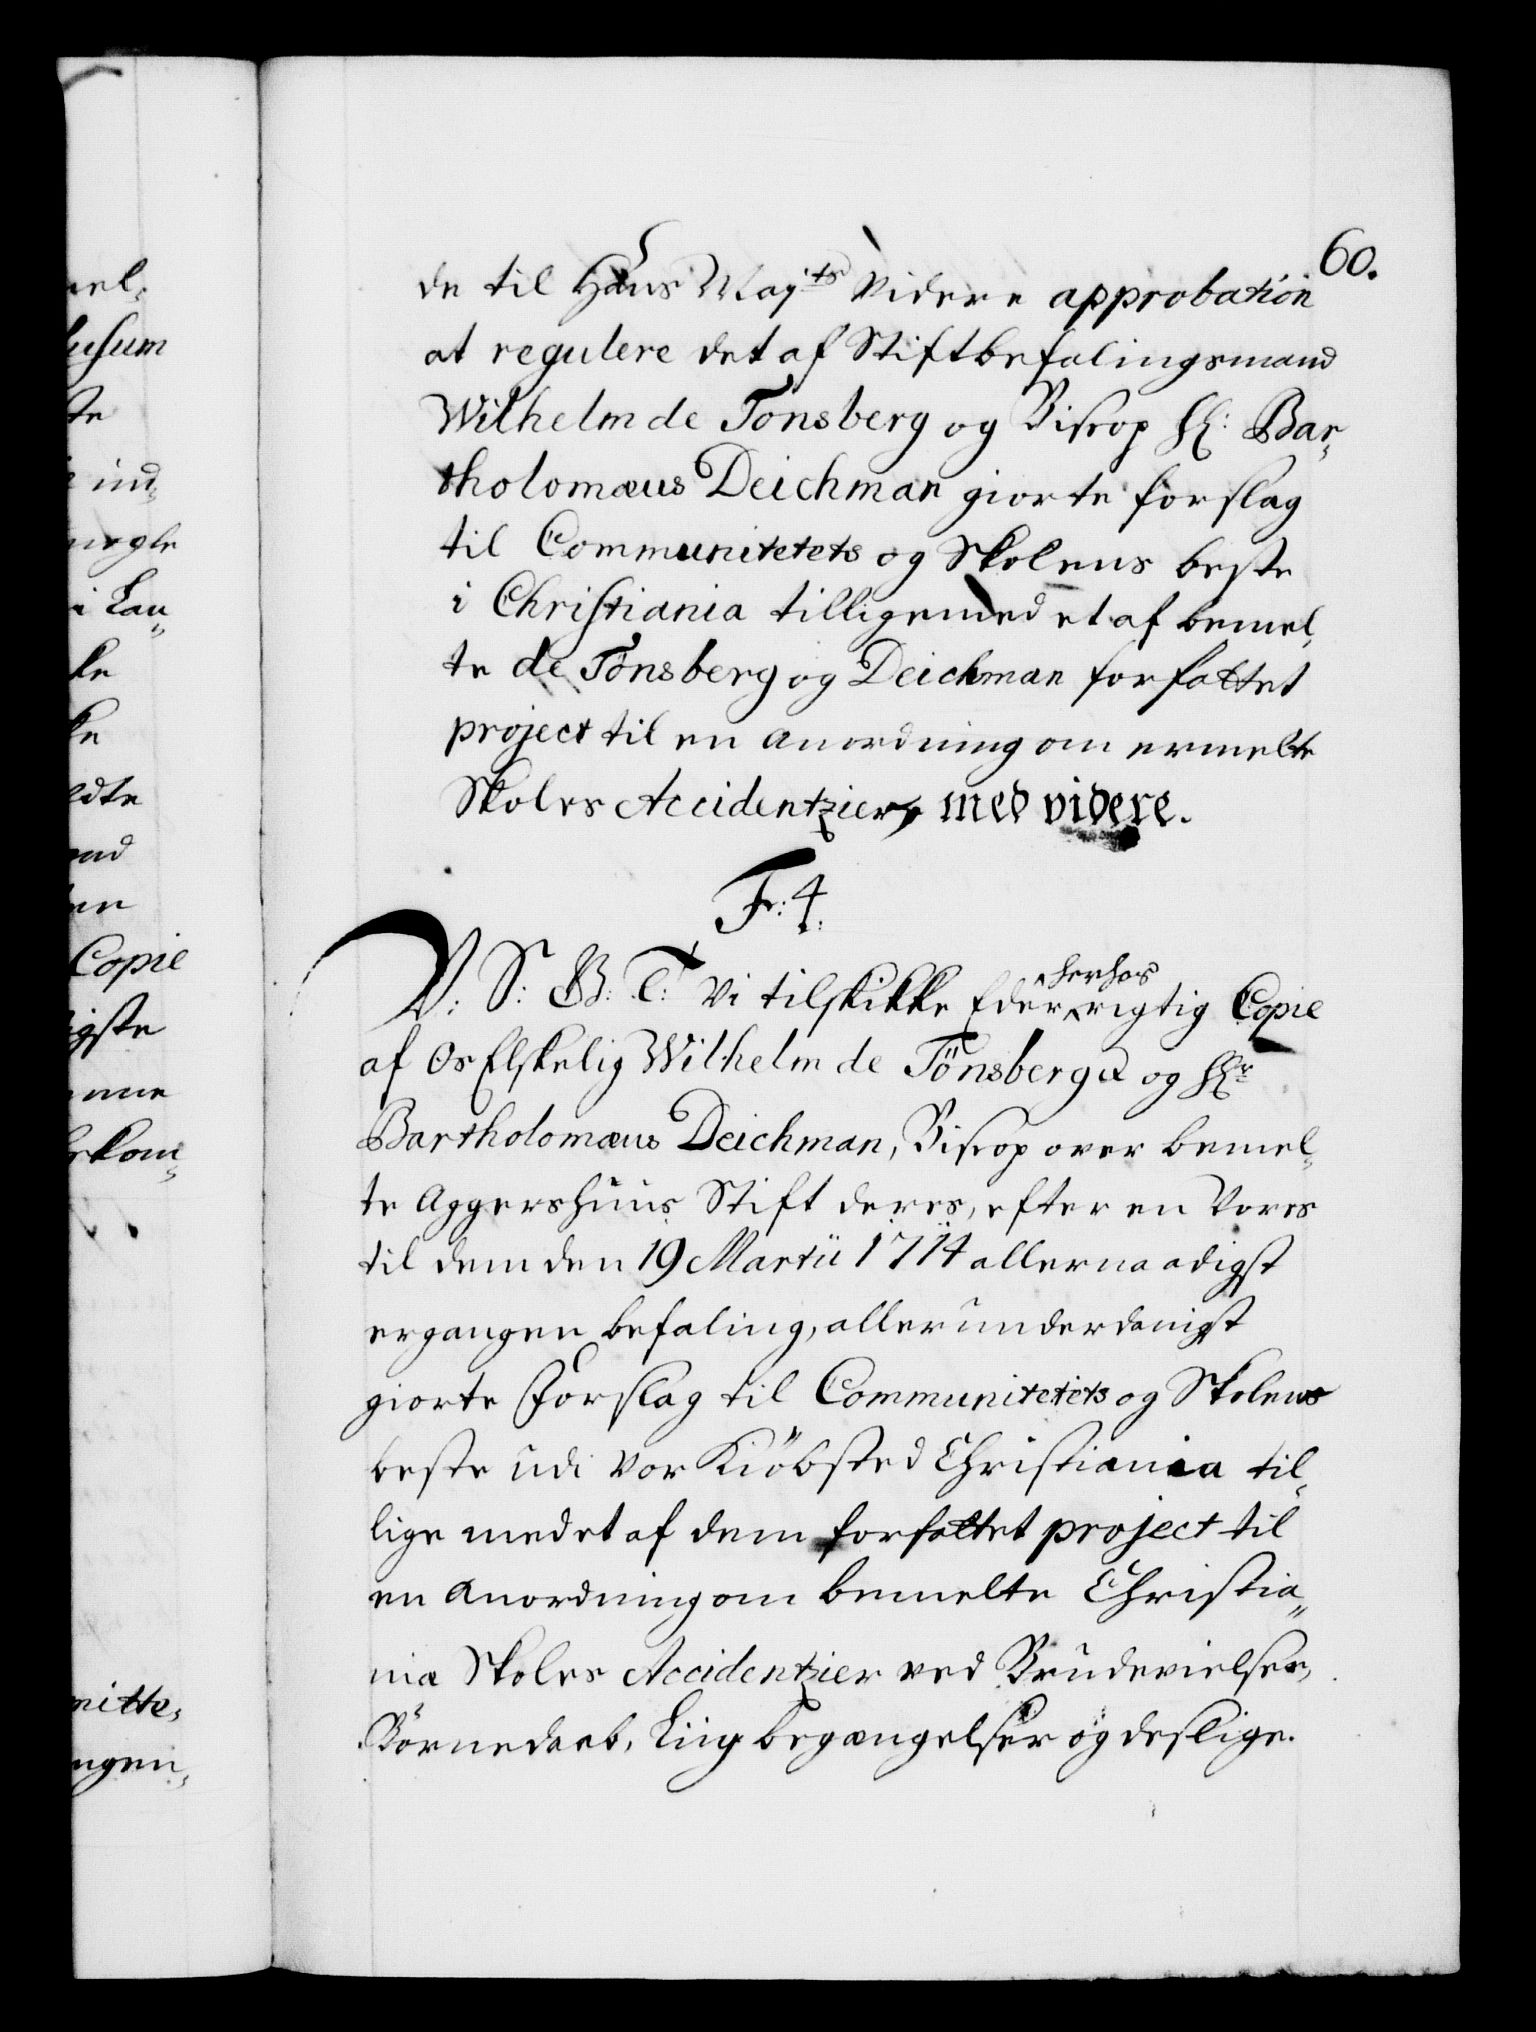 60.
de til Hans Maj:ts videre approbation
at regulere det af Stiftbefalingsmand
Wilhelm de Tonsberg og Biscop H: Bar-
tholomæus Deichman giorte forslag
til Communitetets og Skolens beste
i Christiania tilligemed et af bemel-
te de Tonsberg og Deichman forfattet
project til en anordning om ermelte
Skoles Accidentzier, med videre.
F: 4.
V: S: G: T: Vi tilskikke Eder herhos rigtig Copie
af Os Elskelig Wilhelm de Tönsberg og Hr
Bartholomæus Deichman, Biscop over bemel-
te Aggershuus Stift deres, efter en Vores
til dem den 19 Martii 1714 allernaadigst
ergangen befaling, allerunderdanigst
giorte Forslag til Communitetets og Skolens
beste udi vor Kiöbsted Christiania til-
lige med et af dem forfattet project til
en anordning om bemelte Christia-
nia Skoles Accidentzier ved Brudevielser,
Börnedaab, Liigbegængelser og deslige.
nel-
lusum
te
ind-
nogle
i Lan-
ke
ke
ldte
end
en
Copie
igste
nne
ekom-
mitte-
ngen-